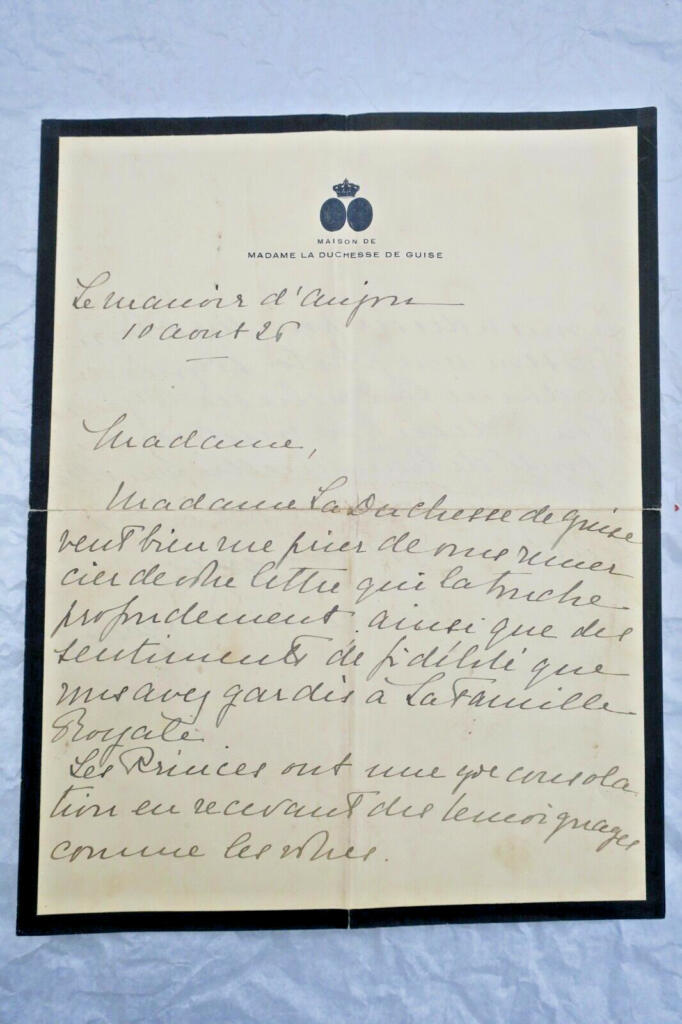 MAISON DE
MADAME LA DUCHESSE DE GUISE
Le Manoir d'Anjou
10 Aout 26
Madame,
Madame La Duchesse de Guise
veut bien me prier de vous remer
cier de votre lettre qui la touche
profondement. ainsi que des
sentiments de fidélité que
vous avez gardés à La Famille
Royale.
Les Princes ont une gde consola
tion en recevant des temoignages
comme les votres.